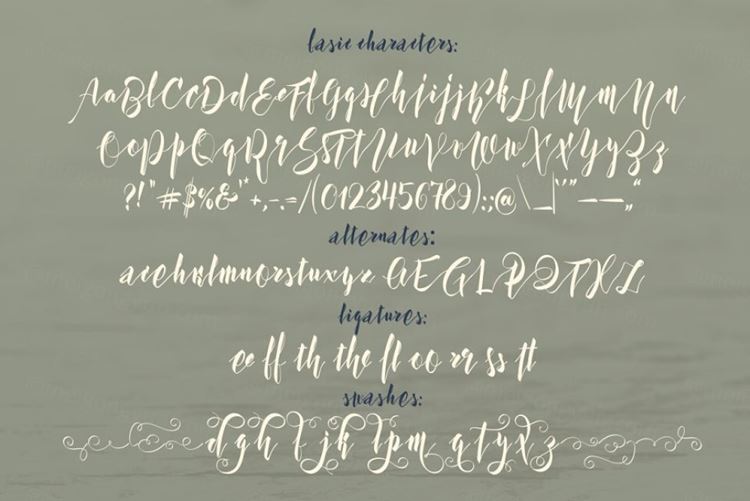 basic characters:
AaBbCcDdEeFfGgHhIiJjKkLlMmNn
OoPpQqRrSsTtUuVvWwXxYyZz
?!"#$%&'*+,-.=/(0123456789):;@\_|‘’”—–„“
alternates:
acehklmnorstuxyz AEGLPQTXZ
ligatures:
ee ff th the fl oo rr ss tt
swashes:
dgh fjk lpm qtyxz